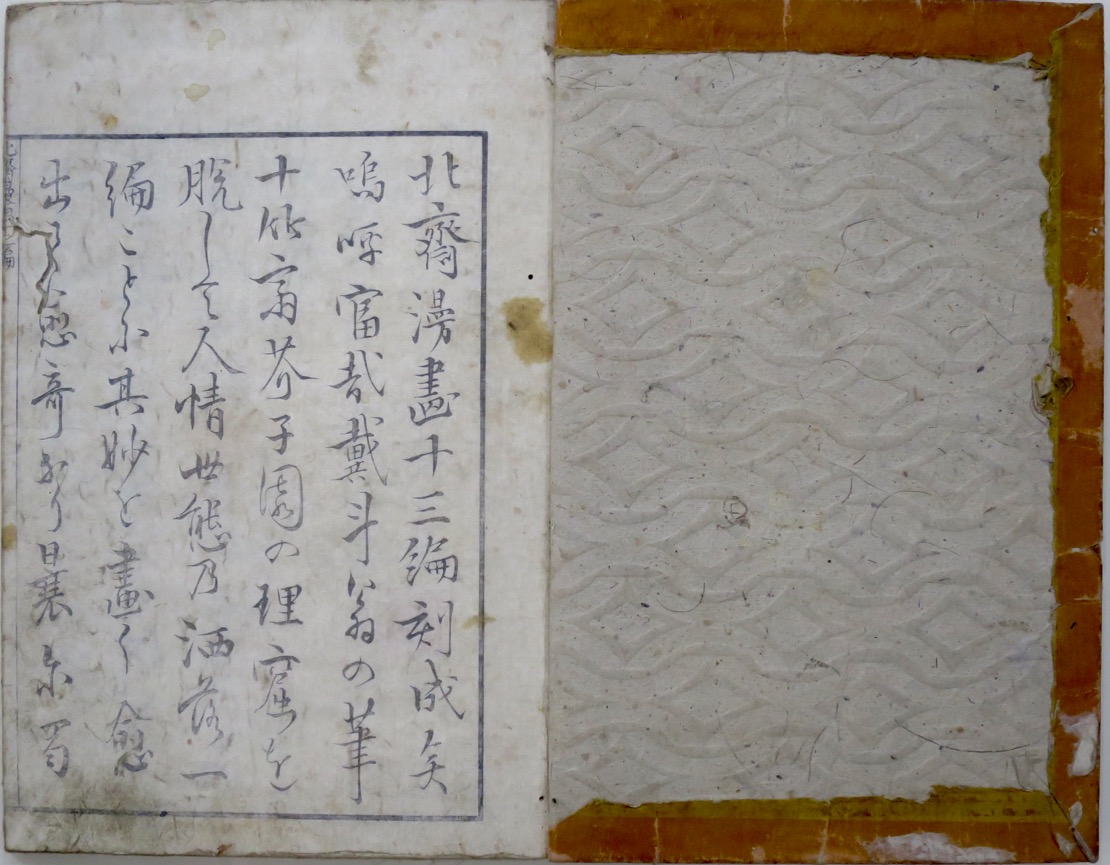 北齋漫畫十三編刻成矣
嗚呼富哉戴斗翁の筆
十竹齋芥子園の理窟を
脱して人情世態乃洒落一
編ことに其妙を畫く愈
出て愈奇なり曩